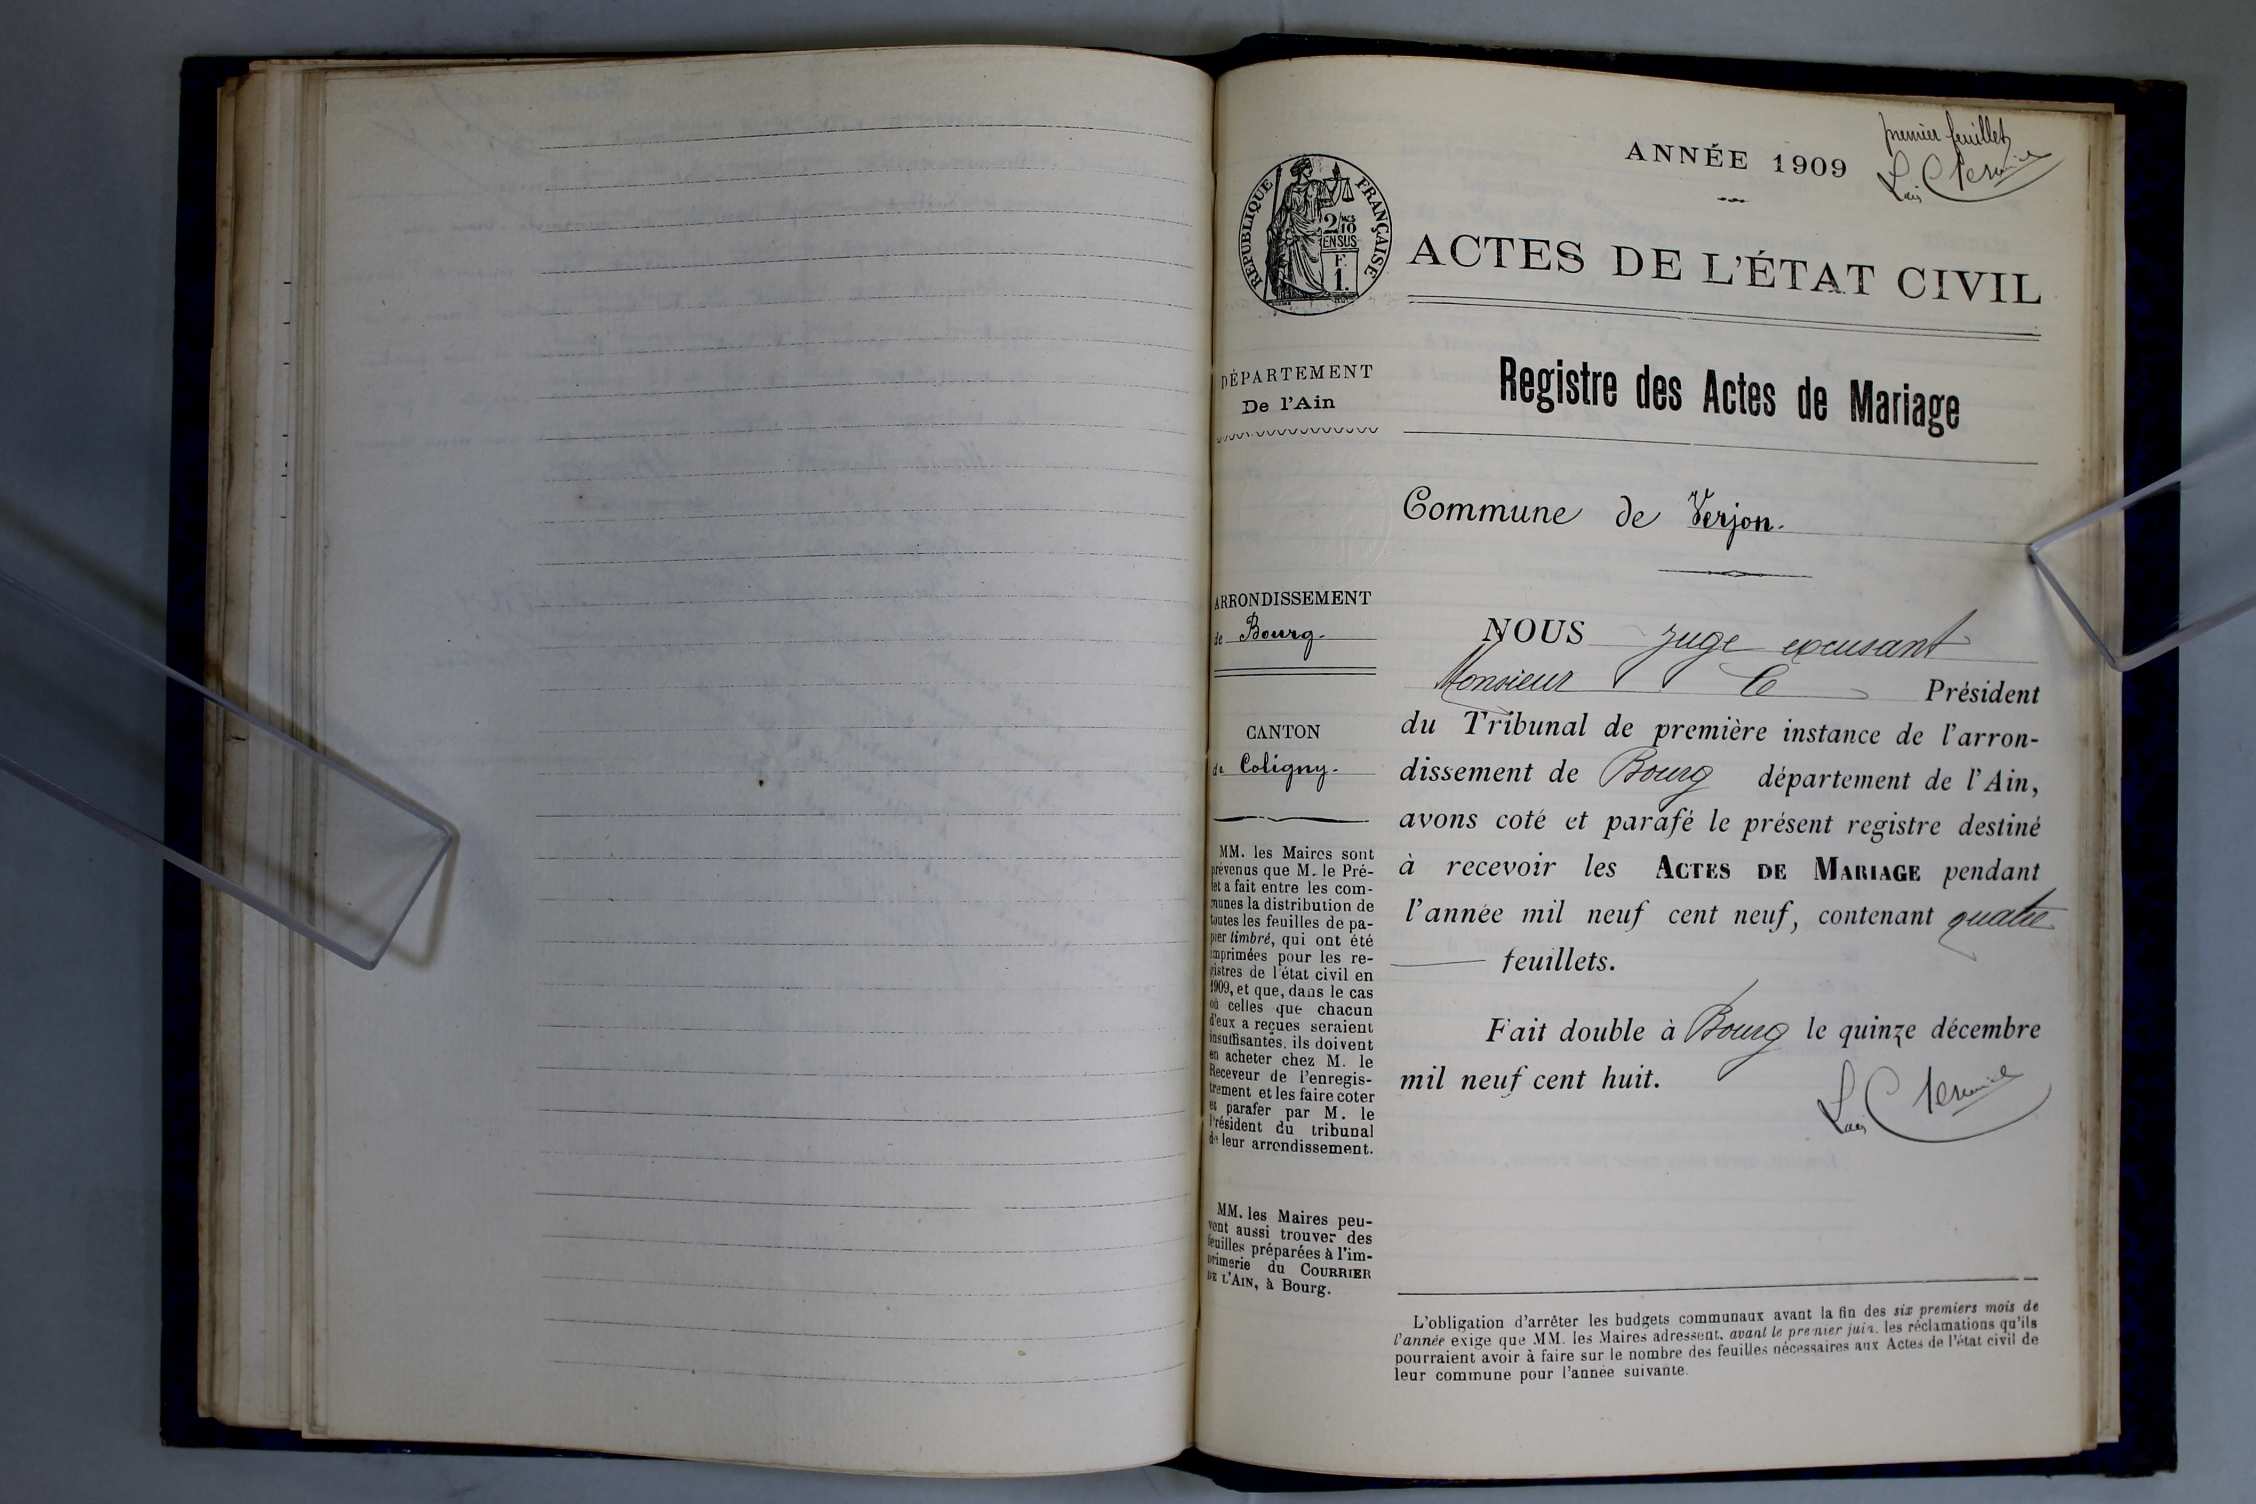 premier feuillet
ANNÉE 1909
RÉPUBLIQUE FRANÇAISE
2/10
EN SUS
F.
1.
ACTES DE L'ÉTAT CIVIL
DÉPARTEMENT
De l'Ain
Registre des Actes de Mariage
Commune de Verjon.
ARRONDISSEMENT
de Bourg.
CANTON
de Coligny.
MM. les Maires sont
prévenus que M. le Pré-
fet a fait entre les com-
munes la distribution de
toutes les feuilles de pa-
pier timbré, qui ont été
imprimées pour les re-
gistres de l'état civil en
1909, et que, dans le cas
où celles que chacun
d'eux a reçues seraient
insuffisantes, ils doivent
en acheter chez M. le
Receveur de l'enregis-
trement et les faire coter
et parafer par M. le
Président du tribunal
de leur arrondissement.
MM. les Maires peu-
vent aussi trouver des
feuilles préparées à l'im-
primerie du COURRIER
DE L'AIN, à Bourg.
NOUS Juge excusant
Monsieur le Président
du Tribunal de première instance de l'arron-
dissement de Bourg département de l'Ain,
avons coté et parafé le présent registre destiné
à recevoir les ACTES DE MARIAGE pendant
l'année mil neuf cent neuf, contenant quatre
feuillets.
Fait double à Bourg le quinze décembre
mil neuf cent huit.
L'obligation d'arrêter les budgets communaux avant la fin des six premiers mois de
l'année exige que MM. les Maires adressent, avant le premier juin, les réclamations qu'ils
pourraient avoir à faire sur le nombre des feuilles nécessaires aux Actes de l'état civil de
leur commune pour l'année suivante.